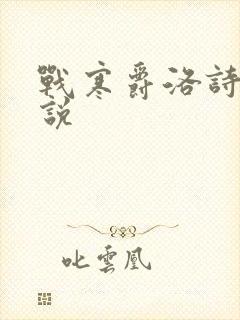 戰寒爵洛詩
說
叱雲凰